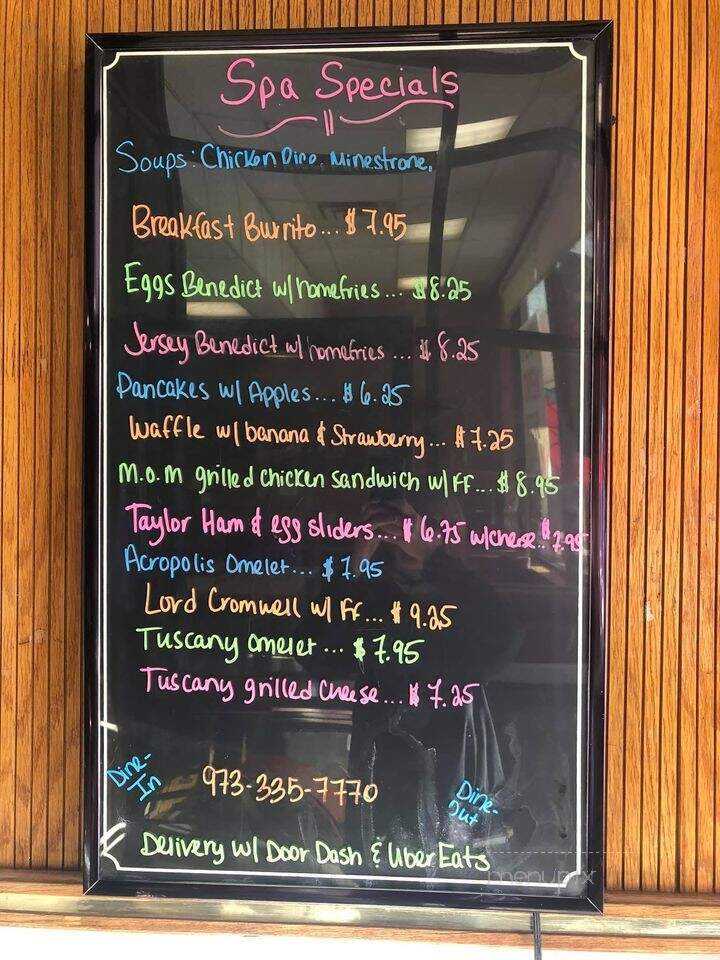 Spa Specials
Soups: Chicken Pirro, Minestrone,
Breakfast Burrito... $7.95
Eggs Benedict w/homefries... $8.25
Jersey Benedict w/ homefries ... $8.25
Pancakes w/ Apples... $6.25
Waffle w/ banana & Strawberry... $7.25
M.O.M grilled chicken sandwich w/ FF... $8.95
Taylor Ham & egg sliders... $6.75 w/cheese.. $7.95
Acropolis Omelet... $7.95
Lord Cromwell w/ FF... $9.25
Tuscany omelet ... $7.95
Tuscany grilled cheese... $7.25
Dine-In
973-335-7770
Dine-Out
Delivery w/ Door Dash & Uber Eats
menupix